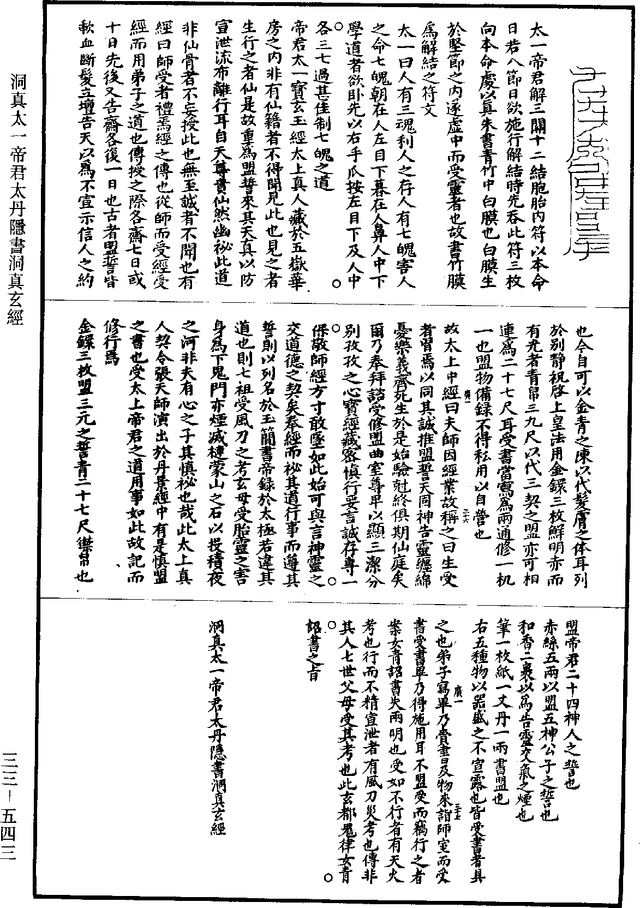 太一帝君解三關十二結胞胎內符以本命
日若八節日欲施行解結時先吞此符三枚
向本命處以真朱書青竹中白膜也白膜生
於堅節之內逐虛中而受靈者也故書竹膜
為解結之符文
太一曰人有三魂利人之存人有七魄害人
之命七魄朝在人左目下暮在人鼻人中下
學道者欲卧先以右手爪按左目下及人中
各三七過甚佳制七魄之道
帝君太一寶玄玉經太上真人藏於五嶽華
房之內非有仙籍者不得聞見此也見之者
生行之者仙是故重為盟誓來其天真以防
宣泄流布離行耳自天尊書仙然幽祕此道
非仙骨者不妄授此也無至誠者不開也有
經曰師受者禮焉經之傳也從師而受經受
經而用弟子之道也傳授之際各齋七日或
十日先後又告齋各復一日也古者盟誓皆
歃血斷髮立壇告天以為不宣示信人之約
也今自可以金青之陳以代髮膚之体耳列
於別靜祝啓上皇法用金鐶三枚解明赤而
有光者青帛三九尺以代三契之盟亦可相
連為二十七尺耳受書當寫為兩通修一机
一也盟物備録不得私用以自營也
故太上中經曰夫師因經業故稱之曰生受
者習焉以同其誠推盟誓天同神告靈纏綿
憂樂義齊死生於是始驗尅終俱期仙庭矣
爾乃奉拜諮受修盟曲室尊卑以顯三潔分
別孜孜之心寶經藏密慎行妄言誠存專一
保敬師經方寸敢墜如此始可與言神靈之
交道德之契矣奉經而祕其道行事而遵其
誓則以列名於玉簡書帝録於太極若違其
道也則七祖受風刀之考玄母受胎靈之害
身為下鬼門亦煙滅摙蒙山之石以投積夜
之河非夫有心之子其慎祕也哉此太上真
人契令張天師演出於丹景經中有是慎盟
之書也受太上帝君之道用事如此故記而
修行焉
金鐶三枚盟三元之誓青二十七尺傑帛也
盟帝君二十四神人之誓也
赤絲五兩以盟五神公子之誓也
和香二裹以為告靈交氣之煙也
筆一枚紙一丈丹一兩書盟也
右五種物以器盛之不宣露也皆受書者具
之也弟子寫畢乃賫書及物來詣師室而受
書受書畢乃得施用耳不盟受而竊行之者
案女青詔書失兩明也受如不行者有天火
考也行而不精宣泄者有風刀災考也傳非
其人七世父母受其考也此玄都鬼律女青
詔書之旨
洞真太一帝君太丹隱書洞真玄經
洞真太一帝君太丹隱書洞真玄經
三三－五四三